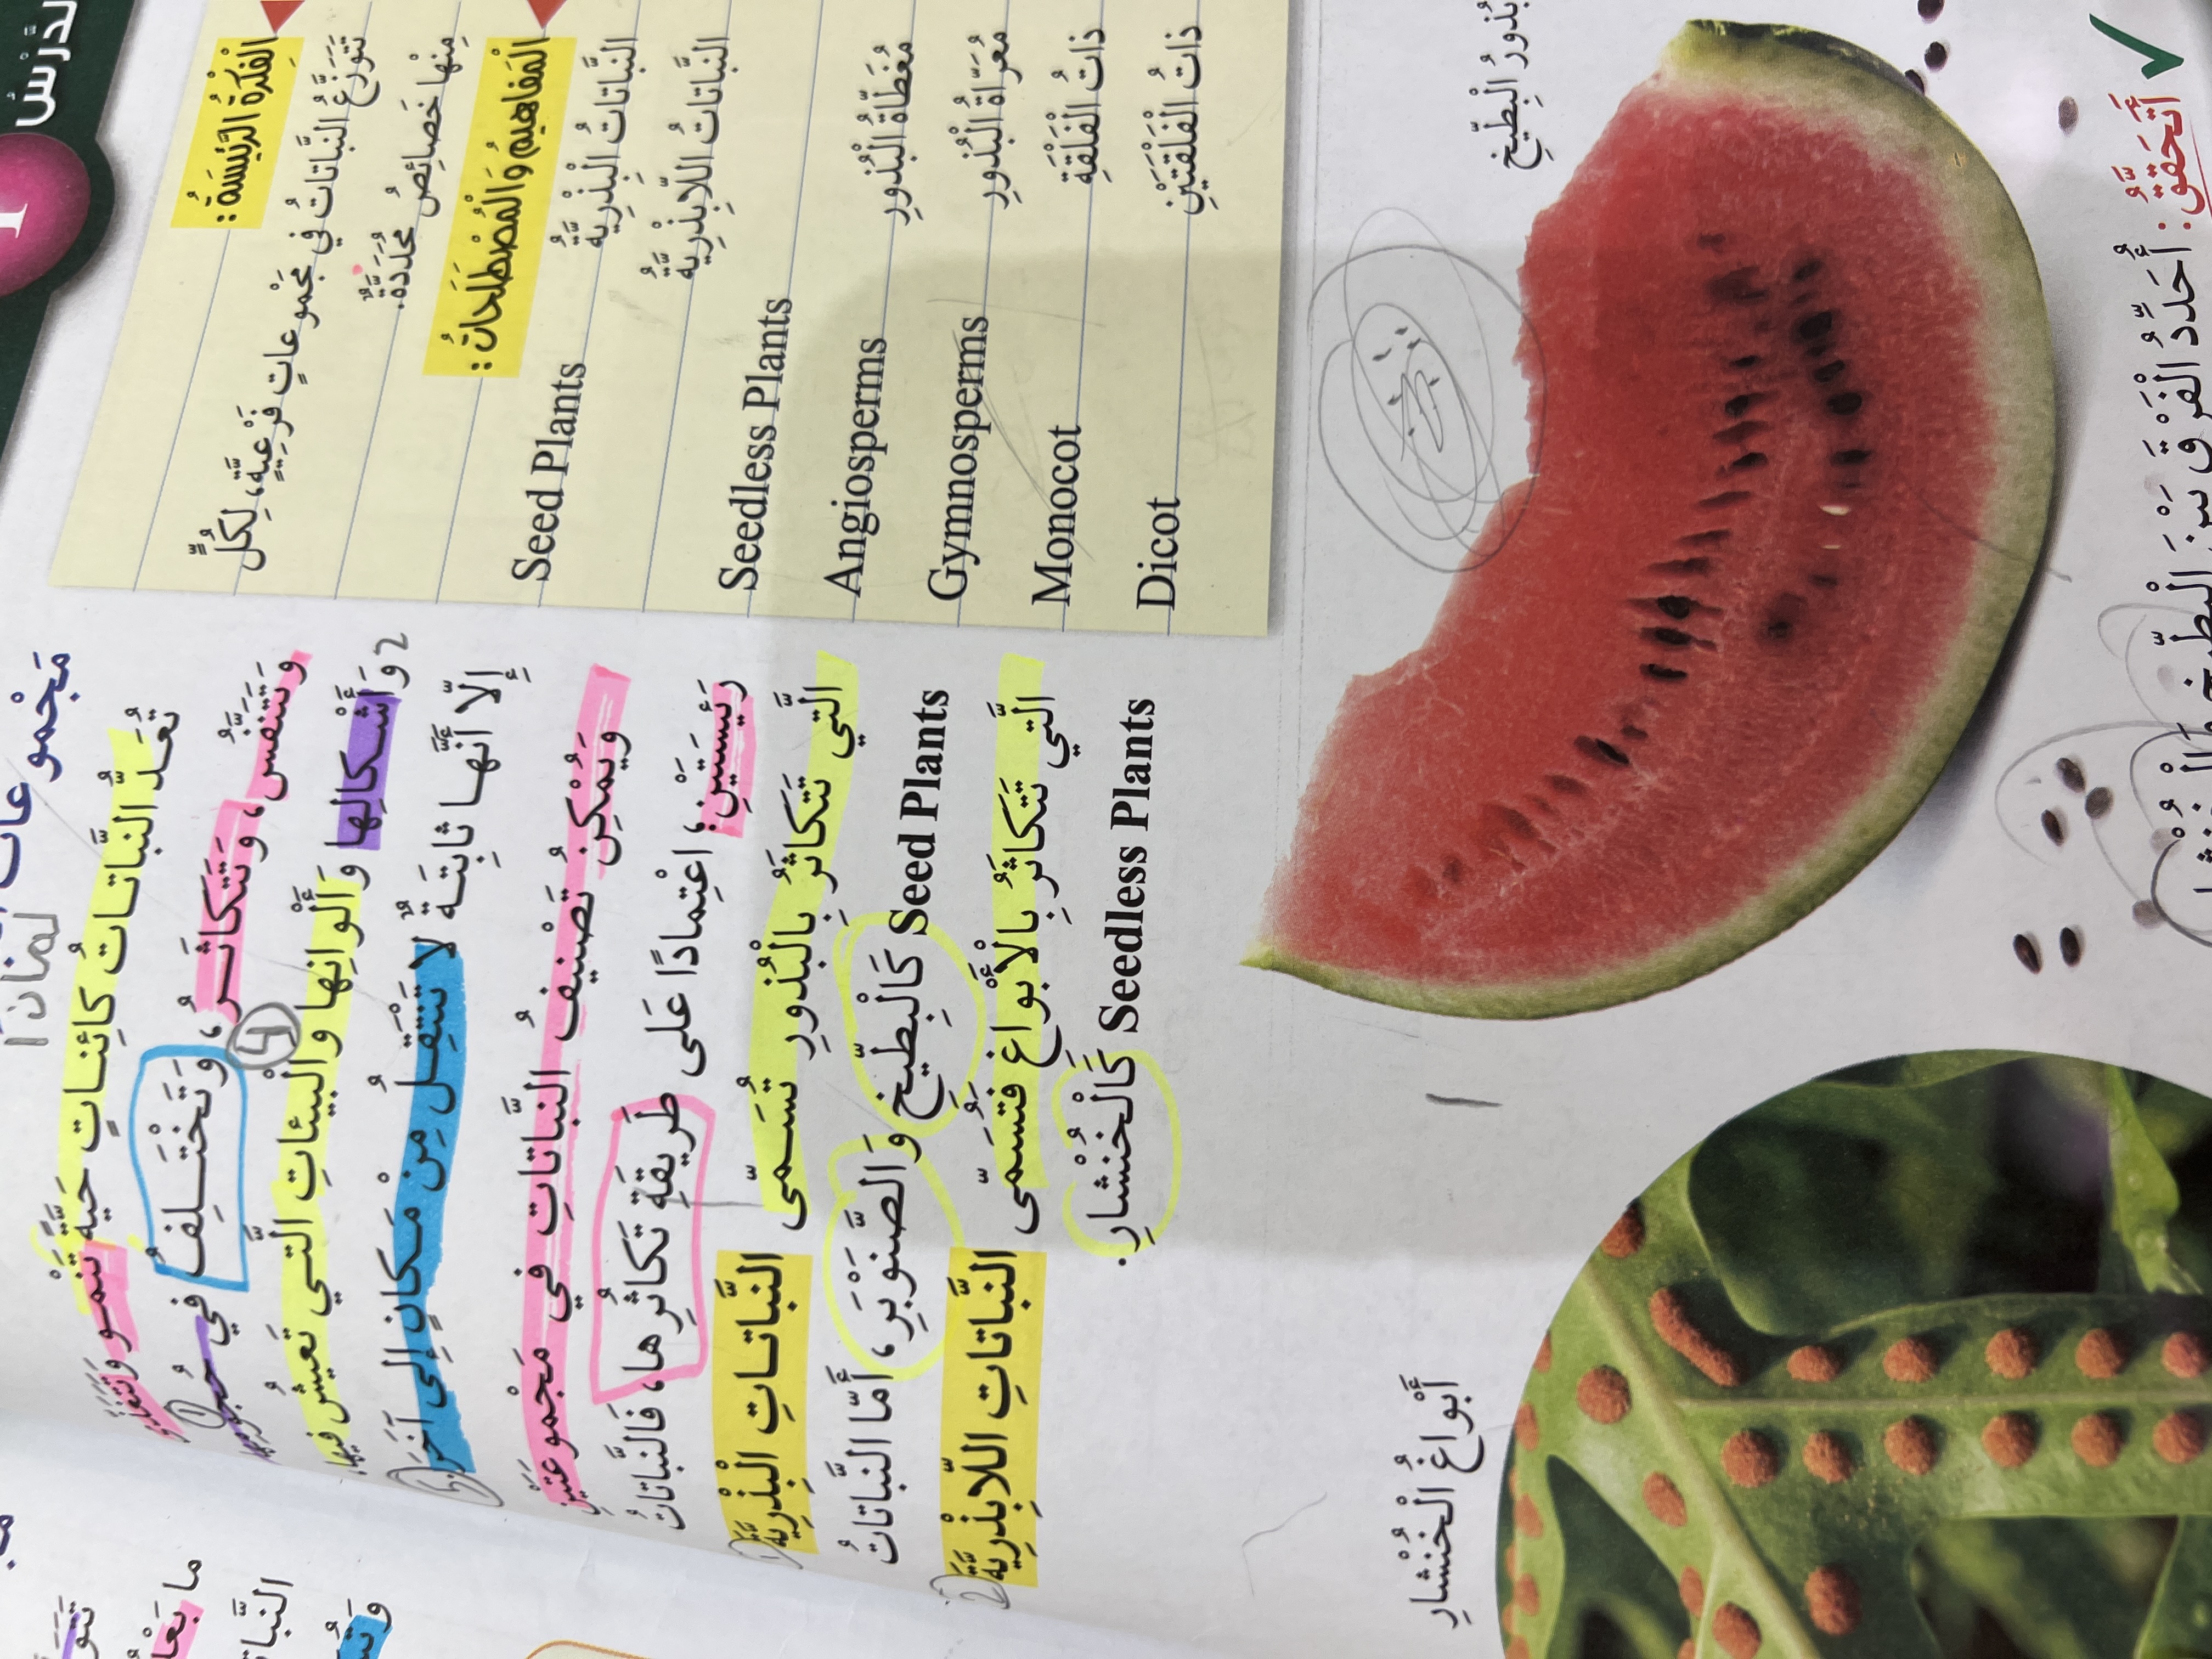 الدَّرْسُ 1
الْفِكْرَةُ الرَّئيسَةُ:
تَتَوَزَّعُ النَّباتاتُ في مَجْموعاتٍ فَرْعِيَّةٍ، لِكُلٍّ
مِنْها خَصائِصُ مُحَدَّدَةٌ.
الْمَفاهيمُ وَالْمُصْطَلَحاتُ:
النَّباتاتُ الْبِذْرِيَّةُ Seed Plants
النَّباتاتُ اللّابِذْرِيَّةُ Seedless Plants
مُغَطّاةُ الْبُذورِ Angiosperms
مُعَرّاةُ الْبُذورِ Gymnosperms
ذاتُ الْفَلْقَةِ Monocot
ذاتُ الْفَلْقَتَيْنِ Dicot
مَجْموعات
لماذا
تُعَدُّ النَّباتاتُ كائِناتٍ حَيَّةً تَنْمو وَتَتَغَذّى
وَتَتَنَفَّسُ، وَتَتَكاثَرُ، وَتَخْتَلِفُ في حُجومِها
وَأَشْكالِها وَأَلْوانِها وَالْبيئاتِ الَّتي تَعيشُ فيها،
إِلّا أَنَّها ثابِتَةٌ لا تَنْتَقِلُ مِنْ مَكانٍ إِلى آخَرَ.
وَيُمْكِنُ تَصْنيفُ النَّباتاتِ في مَجْموعَتَيْنِ
رَئيسَتَيْنِ؛ اعْتِمادًا عَلى طَريقَةِ تَكاثُرِها، فَالنَّباتاتُ
الَّتي تَتَكاثَرُ بِالْبُذورِ تُسَمّى النَّباتاتِ الْبِذْرِيَّةَ
Seed Plants كَالْبِطّيخِ وَالصَّنَوْبَرِ، أَمّا النَّباتاتُ
الَّتي تَتَكاثَرُ بِالْأَبْواغِ فَتُسَمّى النَّباتاتِ اللّابِذْرِيَّةَ
Seedless Plants كَالْخُنْشارِ.
بُذورُ الْبِطّيخِ
أَبْواغُ الْخُنْشارِ
✓ أَتَحَقَّقُ: أُحَدِّدُ الْفَرْقَ بَيْنَ الْبِطّيخِ وَالْخُنْشارِ